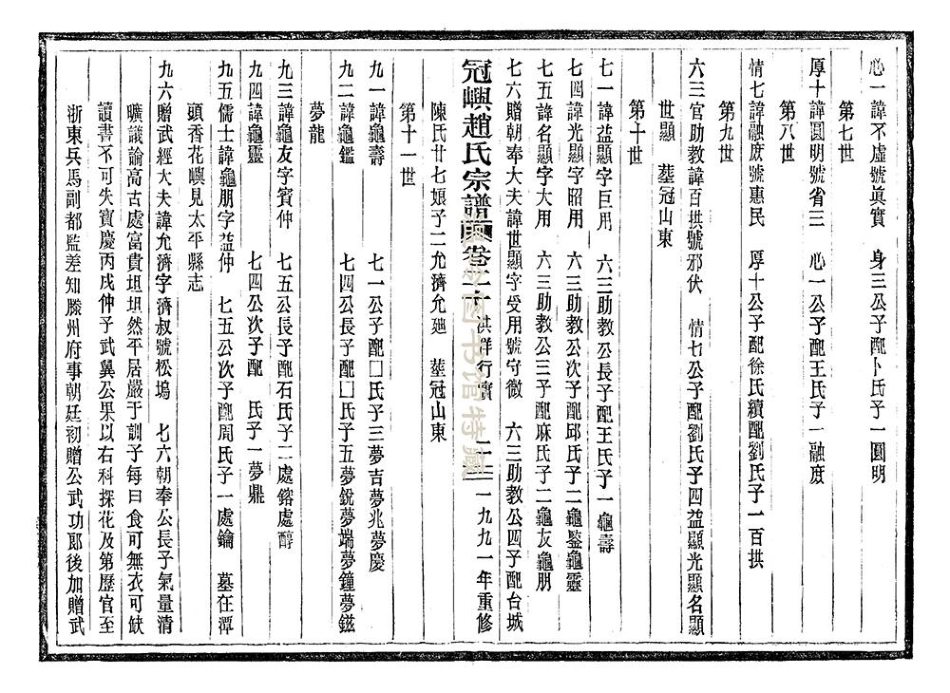 心一諱不虛號眞實 身三公子配卜氏子一圓明
第七世
厚十諱圓明號省三 心一公子配王氏子一融庻
第八世
情七諱融庻號惠民 厚十公子配徐氏續配劉氏子一百拱
第九世
六三官助教諱百拱號邪伏 情七公子配劉氏子四益顯光顯名顯
世顯 塟冠山東
第十世
七一諱益顯字巨用 六三助教公長子配王氏子一龜壽
七四諱光顯字昭用 六三助教公次子配邱氏子二龜鑒龜靈
七五諱名顯字大用 六三助教公三子配麻氏子二龜友龜朋
七六贈朝奉大夫諱世顯字受用號守微 六三助教公四子配台城
冠嶼趙氏宗譜 卷二十 洪群行實 一九九一年重修
陳氏廿七娘子二允濟允廸 塟冠山東
第十一世
九一諱龜壽 七一公子配囗氏子三夢吉夢兆夢慶
九二諱龜鑑 七四公長子配囗氏子五夢銳夢端夢鐘夢鎡
夢龍
九三諱龜友字賓仲 七五公長子配石氏子二處鎔處醇
九四諱龜靈 七四公次子配 氏子一夢鼎
九五儒士諱龜朋字益仲 七五公次子配周氏子一處鑰 墓在潭
頭香花嶼見太平縣志
九六贈武經大夫諱允濟字濟叔號松塢 七六朝奉公長子氣量清
曠議論高古處富貴坦坦然平居嚴于訓子每曰食可無衣可缺
讀書不可失寳慶丙戌仲子武翼公果以右科探花及第歷官至
浙東兵馬副都監差知滕州府事朝廷初贈公武功郎後加贈武